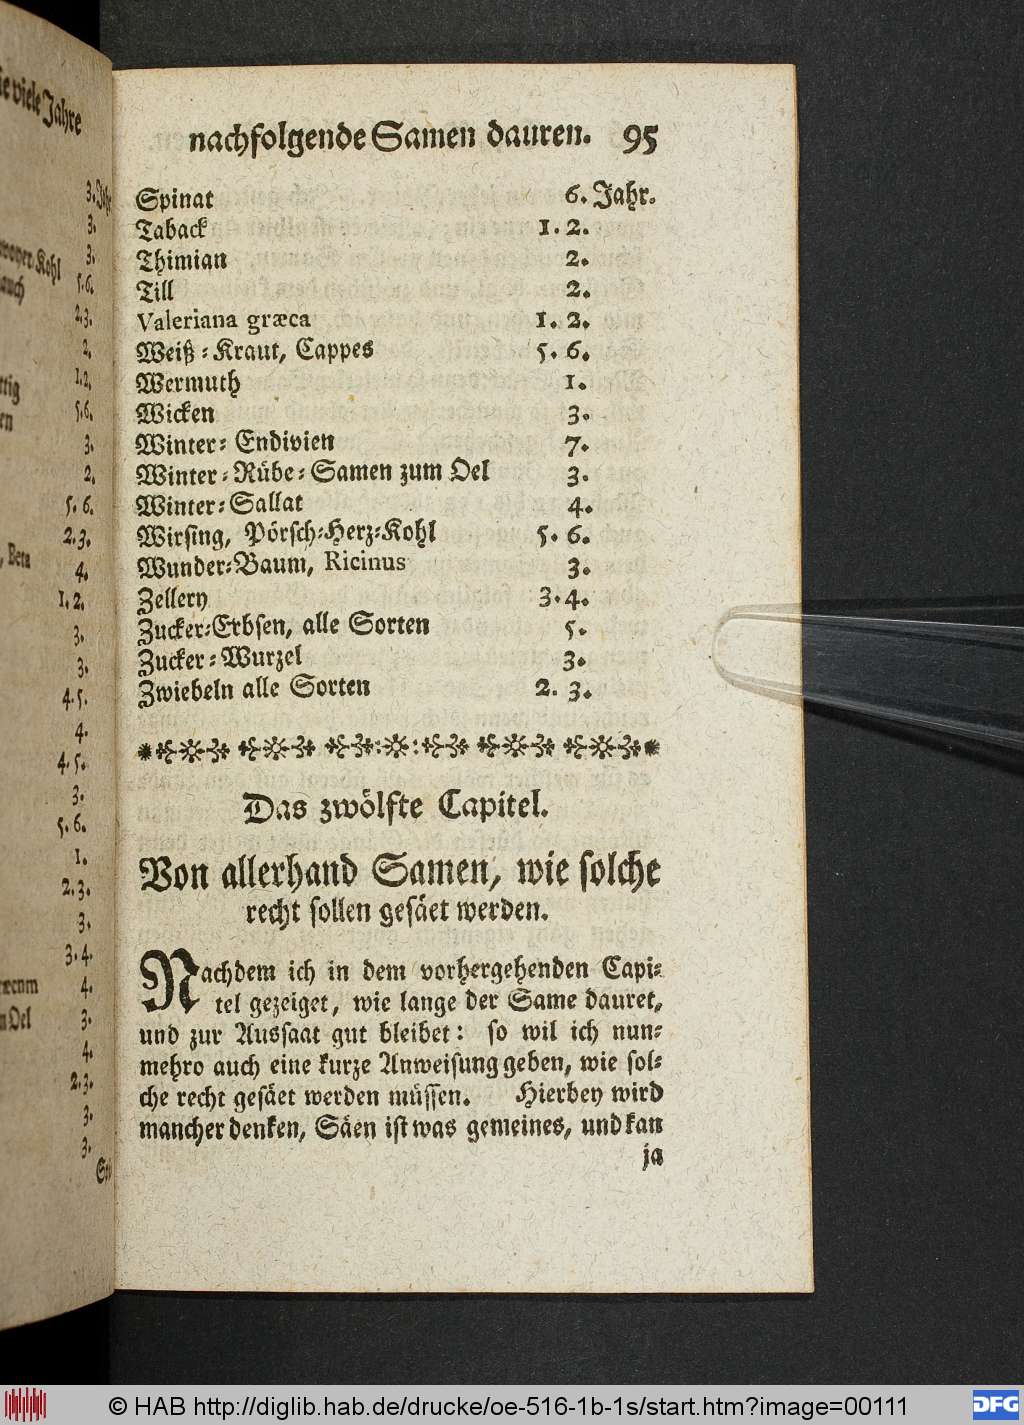 nachfolgende Samen dauren. 95
Spinat 6. Jahr.
Taback 1. 2.
Thimian 2.
Till 2.
Valeriana græca 1. 2.
Weiß-Kraut, Cappes 5. 6.
Wermuth 1.
Wicken 3.
Winter-Endivien 7.
Winter-Rübe-Samen zum Oel 3.
Winter-Sallat 4.
Wirsing, Pörsch-Herz-Kohl 5. 6.
Wunder-Baum, Ricinus 3.
Zellery 3. 4.
Zucker-Erbsen, alle Sorten 5.
Zucker-Wurzel 3.
Zwiebeln alle Sorten 2. 3.
Das zwölfte Capitel.
Von allerhand Samen, wie solche
recht sollen gesäet werden.
Nachdem ich in dem vorhergehenden Capi-
tel gezeiget, wie lange der Same dauret,
und zur Aussaat gut bleibet: so wil ich nun-
mehro auch eine kurze Anweisung geben, wie sol-
che recht gesäet werden müssen. Hierbey wird
mancher denken, Säen ist was gemeines, und kan
ja
© HAB http://diglib.hab.de/drucke/oe-516-1b-1s/start.htm?image=00111
DFG